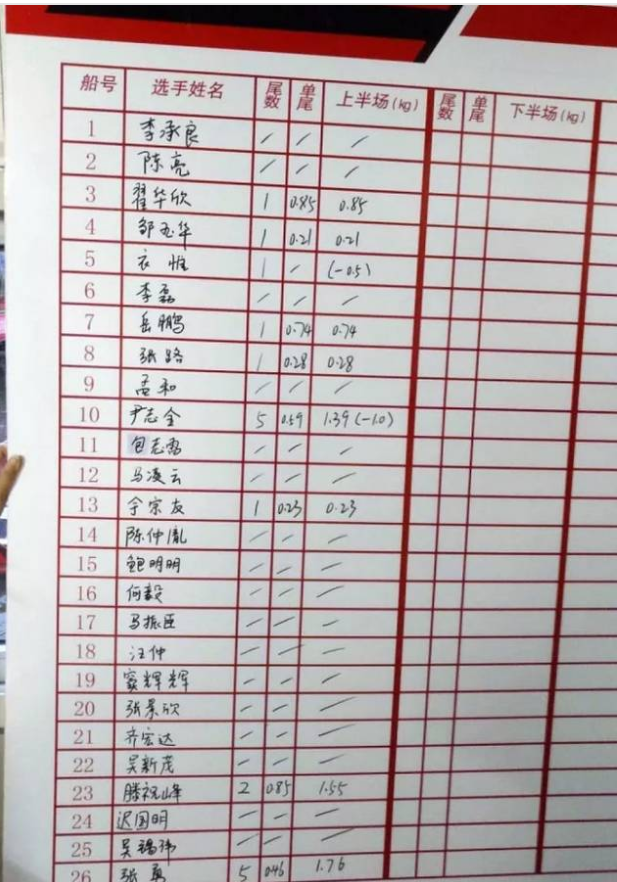 船号 选手姓名 尾数 单尾 上半场(kg) 尾数 单尾 下半场(kg)
1 李承良 / / /
2 陈亮 / / /
3 翟华欣 1 0.85 0.85
4 邹玉华 1 0.21 0.21
5 衣惟 1 / (-0.5)
6 李磊 / / /
7 岳鹏 1 0.74 0.74
8 张路 1 0.28 0.28
9 孟和 / / /
10 尹志全 5 0.59 1.39(-1.0)
11 包志 / / /
12 马凌云 / / /
13 于宗友 1 0.23 0.23
14 陈仲胤 / / /
15 鲍明明 / / /
16 何毅 / / /
17 马振臣 / / /
18 汪仲 / / /
19 窦辉辉 / / /
20 张景欣 / / /
21 齐宏达 / / /
22 吴新茂 / / /
23 滕祝峰 2 0.85 1.55
24 迟国明 / / /
25 吴瑞祎 / / /
26 张勇 5 0.46 1.76